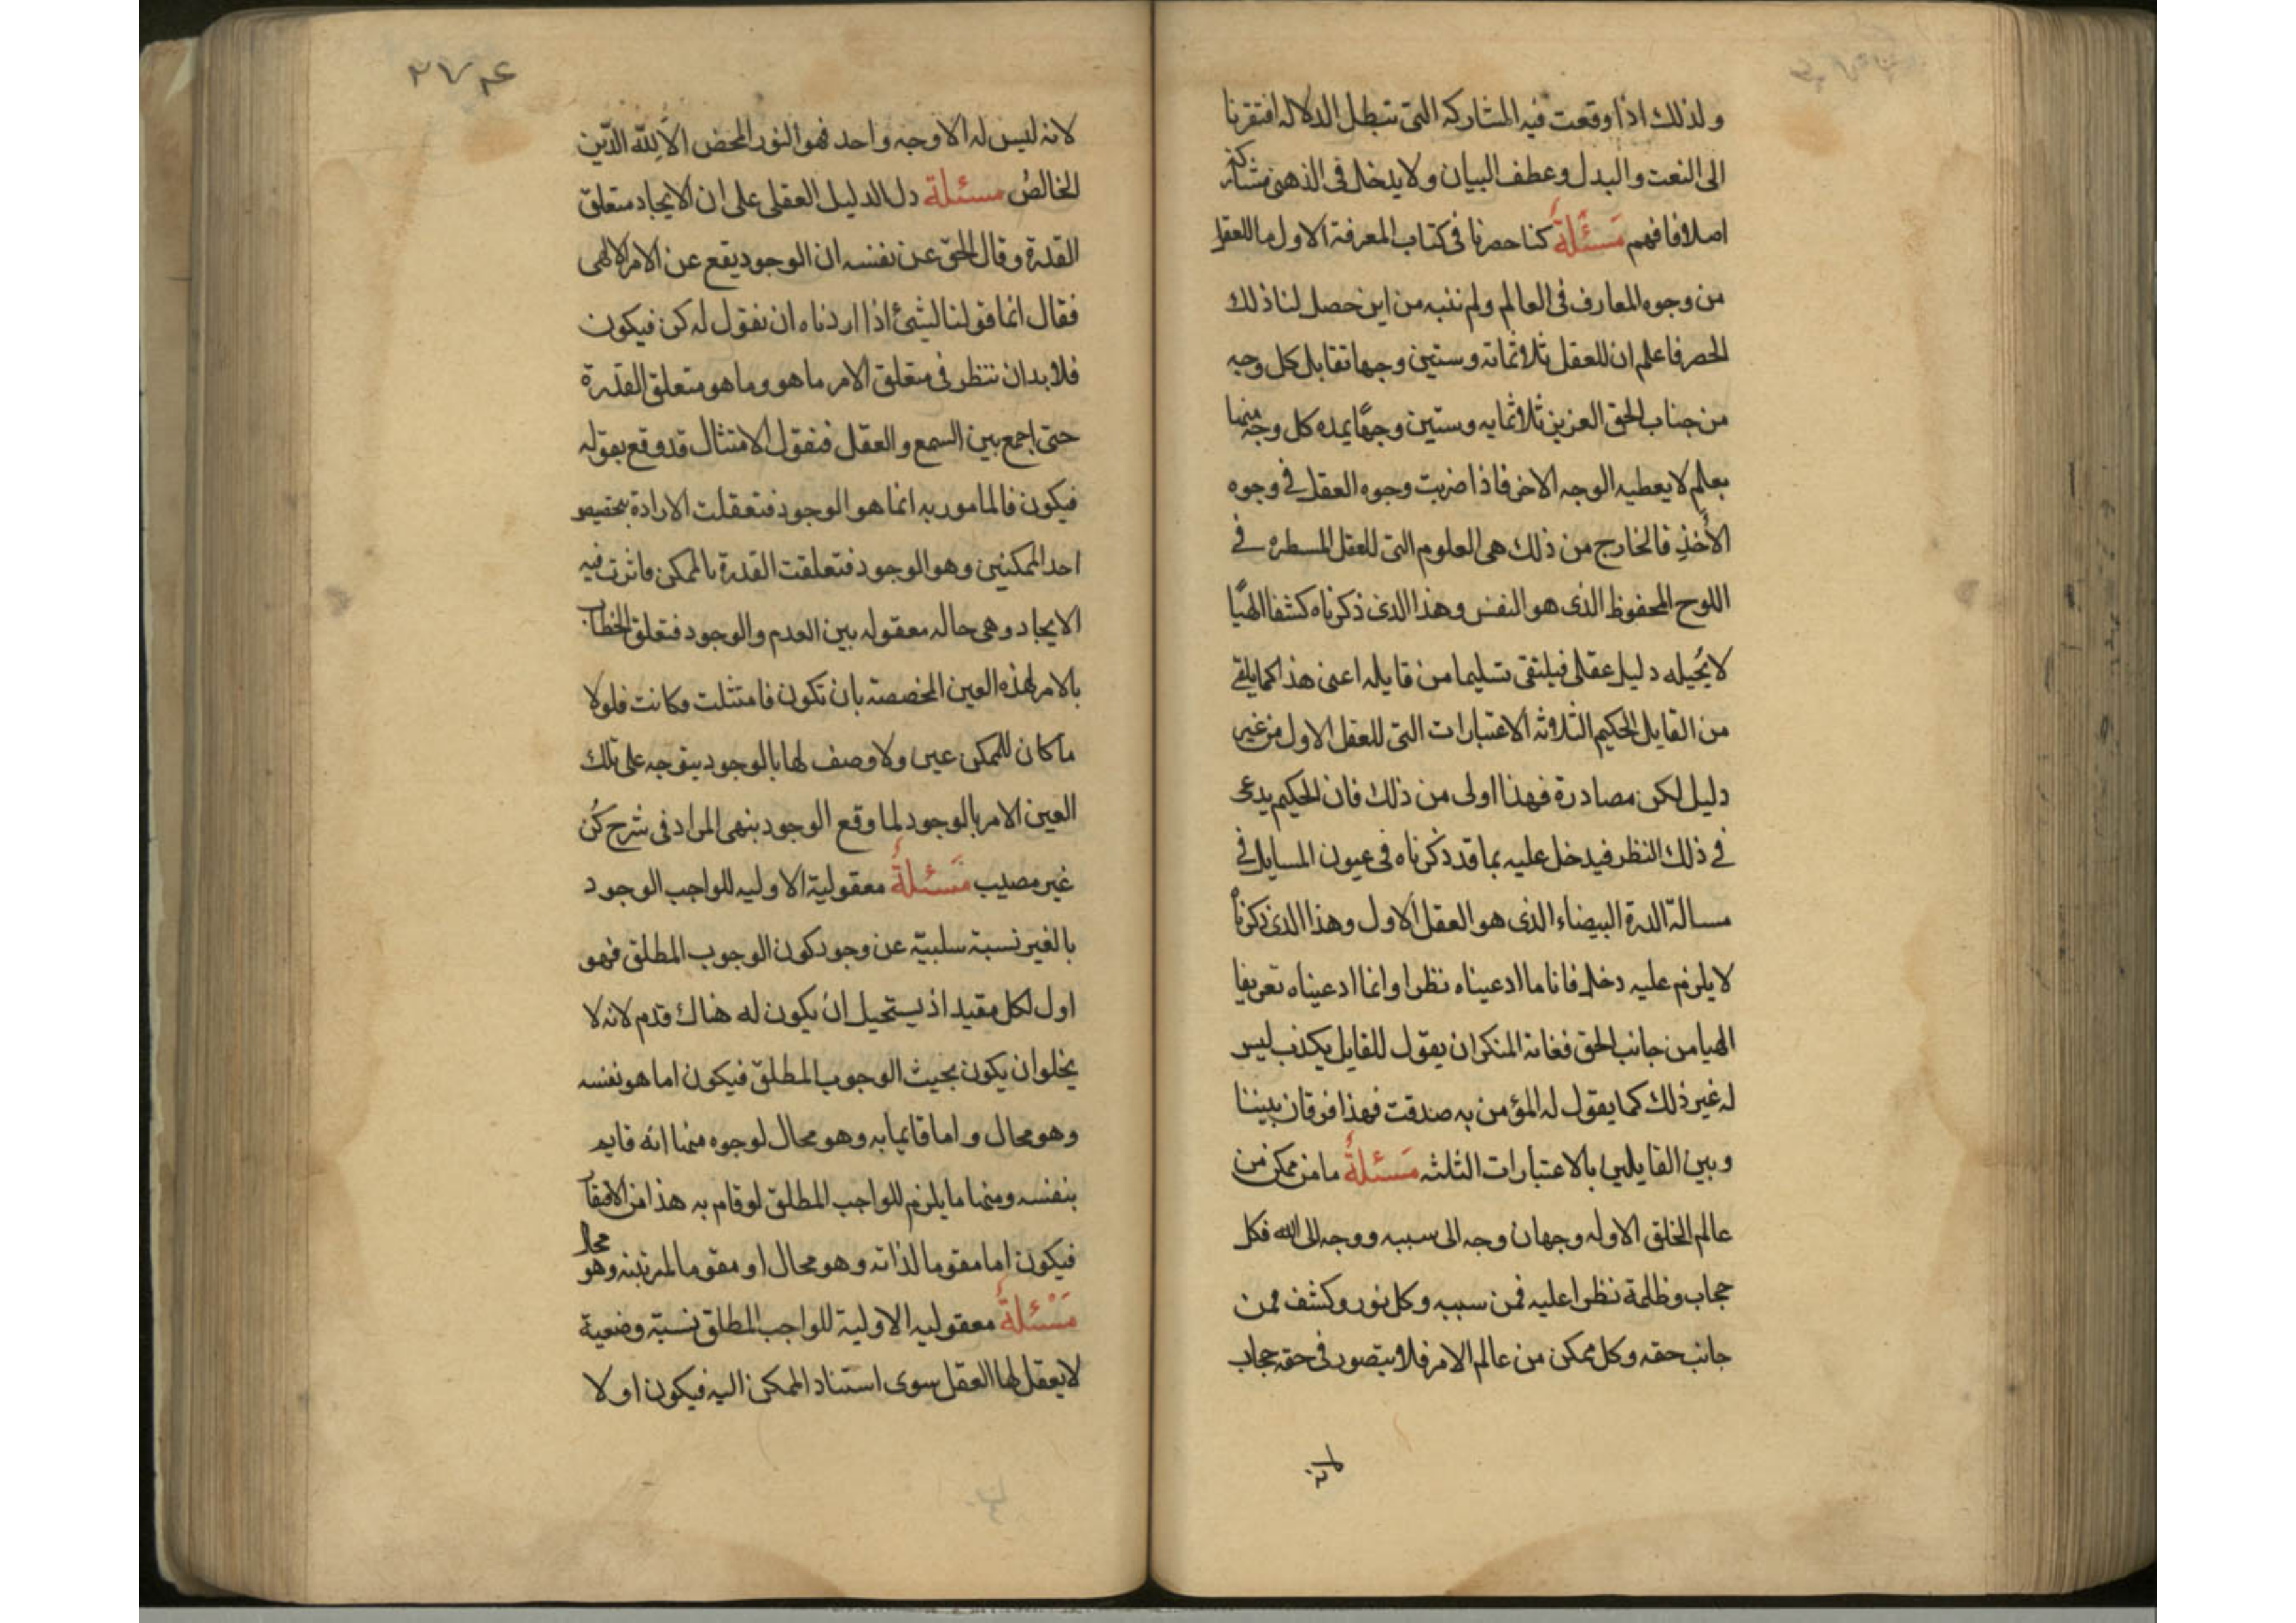 ولذلك اذا وقعت فيه المشاركه التى تبطل الدلاله افتقرنا
الى النعت والبدل وعطف البيان ولا يدخل فى الذهن مشاركة
اصلا فافهم مَسْئلةٌ كنا حصرنا فى كتاب المعرفة الاول ما للعقل
من وجوه المعارف فى العالم ولم ننبه من اين حصل لنا ذلك
الحصر فاعلم ان للعقل ثلاثماته وستين وجها تقابل كل وجه
من جناب الحق العزيز ثلاثمايه وستين وجهًا يمده كل وجه منها
بعلم لا يعطيه الوجه الاخر فاذا ضربت وجوه العقل فى وجوه
الأخذِ فالخارج من ذلك هى العلوم التى للعقل المسطره فى
اللوح المحفوظ الذى هو النفس وهذا الذى ذكرناه كشفا الهيًا
لا يُحيله دليل عقلى فيلتقى تسليما من قايله اعنى هذا كما يلقى
من القايل الحكيم الثلاثه الاعتبارات التى للعقل الاول من غير
دليل لكن مصادرة فهذا اولى من ذلك فان الحكيم يدعى
فى ذلك النظر فيدخل عليه بما قد ذكرناه فى عيون المسايل فى
مسالة الدرة البيضاء الذى هو العقل الاول وهذا الذى ذكرناه
لا يلزم عليه دخل فانا ما ادعيناه نظرا وانما ادعيناه تعريفا
الهيا من جانب الحق فغاته المنكر ان يقول للقايل يكذب ليس
له غير ذلك كما يقول له المؤمن به صدقت فهذا فرقان بيننا
وبين القايلين بالاعتبارات الثلثه مَسئلةٌ ما من ممكن من
عالم الخلق الاوله وجهان وجه الى سببه ووجه الى الله فكل
حجاب وظلمة نظرا عليه فمن سببه وكل نور وكشف فمن
جانب حقه وكل ممكن من عالم الامر فلا يتصور فى حقه حجاب
لانه ليس له الا وجه واحد فهو النور المحض الا لله الدّين
الخالصُ مسئلة دل الدليل العقلى على ان الايجاد متعلق
القدرة وقال الحق عن نفسه ان الوجود يقع عن الامر الالهى
فقال انما قولنا لشئ اذا اردناه ان نقول له كن فيكون
فلا بد ان ننظر فى متعلق الامر ما هو وما هو متعلق القدرة
حتى اجمع بين السمع والعقل فنقول الامتثال قد وقع بقوله
فيكون فالمامور به انما هو الوجود فتعقلت الارادة بتخصيص
احد الممكنين وهو الوجود فتعلقت القدرة بالممكن فاثرت فيه
الايجاد وهى حاله معقوله بين العدم والوجود فتعلق الخطاب
بالامر لهذه العين المخصصة بان تكون فامتثلت فكانت فلولا
ما كان للممكن عين ولا وصف لها بالوجود يتوجه على تلك
العين الامر بالوجود لما وقع الوجود بنهى المراد فى شرح كُن
غير مصيب مَسْئلةٌ معقولية الاوليه للواجب الوجود
بالغير نسبة سلبيّة عن وجود كون الوجوب المطلق فهو
اول لكل مقيد اذ يستحيل ان يكون له هناك قدم لانه لا
يخلو ان يكون بحيث الوجوب المطلق فيكون اما هو نفسه
وهو محال واما قايما به وهو محال لوجوه منها انه قايم
بنفسه ومنها ما يلزم للواجب المطلق لو قام به هذا من الافتقار
فيكون اما مقوما لذاته وهو محال او مقوما لمرتبته وهو محال
مَسْئلةٌ معقوليه الاولية للواجب المطلق نسبة وضعية
لا يعقل لها العقل سوى استناد الممكن اليه فيكون اولا